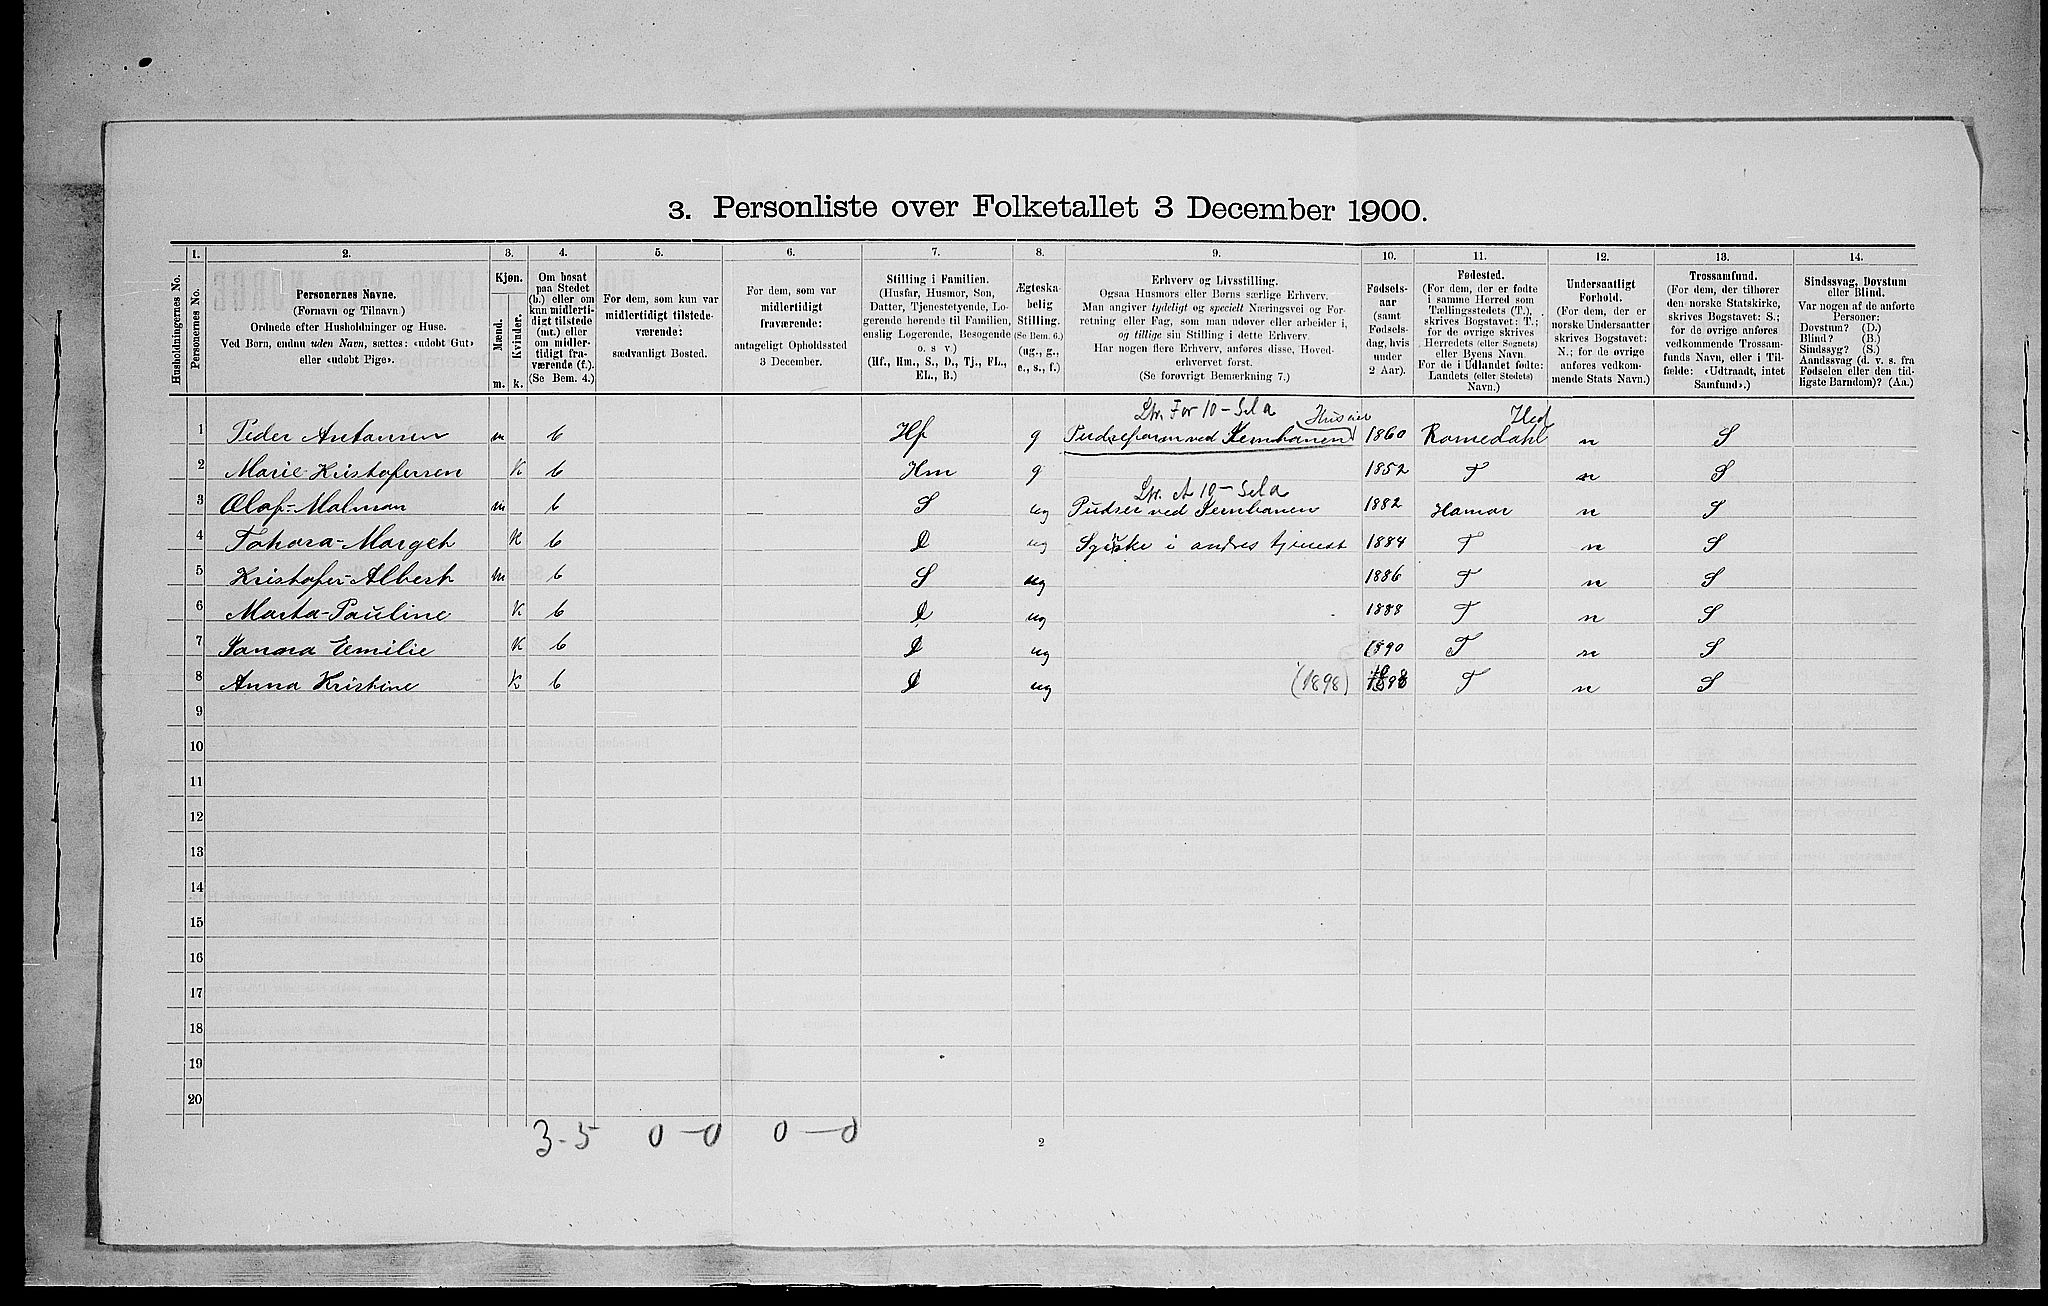 3. Personliste over Folketallet 3 December 1900.
1. 2. 3. 4. 5. 6. 7. 8. 9. 10. 11. 12. 13. 14.
Husholdningernes No.
Personernes No.
Personernes Navne.
(Fornavn og Tilnavn)
Ordnede efter Husholdninger og Huse.
Ved Børn, endnu uden Navn, sættes: «udøbt Gut»
eller «udøbt Pige».
Kjøn.
Mænd.
Kvinder.
m. k.
Om bosat
paa Stedet
(b.) eller om
kun midlerti-
digt tilstede
(mt.) eller
om midler-
tidigt fra-
værende (f.).
(Se Bem. 4.)
For dem, som kun var
midlertidigt tilstede-
værende:
sædvanligt Bosted.
For dem, som var
midlertidigt
fraværende:
antageligt Opholdssted
3 December.
Stilling i Familien.
(Husfar, Husmor, Søn,
Datter, Tjenestetyende, Lo-
gerende hørende til Familien,
enslig Logerende, Besøgende
o. s v.)
(Hf., Hm., S., D., Tj., FL.,
EL., B.)
Ægteska-
belig
Stilling.
(Se Bem. 6.)
(ug., g.,
e., s., f.)
Erhverv og Livsstilling.
Ogsaa Husmors eller Børns særlige Erhverv.
Man angiver tydeligt og specielt Næringsvei og For-
retning eller Fag, som man udøver eller arbeider i,
og tillige sin Stilling i dette Erhverv.
Har nogen flere Erhverv, anføres disse, Hoved-
erhvervet først.
(Se forøvrigt Bemærkning 7.)
Fødsels-
aar
(samt
Fødsels-
dag, hvis
under
2 Aar).
Fødested.
(For dem, der er fødte
i samme Herred som
Tællingsstedets (T.),
skrives Bogstavet: T.;
for de øvrige skrives
Herredets (eller Sognets)
eller Byens Navn.
For de i Udlandet fødte:
Landets (eller Stedets)
Navn.)
Undersaatligt
Forhold.
(For dem, der er
norske Undersaatter
skrives Bogstavet:
N.; for de øvrige
anføres vedkom-
mende Stats Navn.)
Trossamfund.
(For dem, der tilhører
den norske Statskirke,
skrives Bogstavet: S.;
for de øvrige anføres
vedkommende Trossam-
funds Navn, eller i Til-
fælde: «Udtraadt, intet
Samfund».)
Sindssvag, Døvstum
eller Blind.
Var nogen af de anførte
Personer:
Døvstum? (D.)
Blind? (B.)
Sindssyg? (S.)
Aandssvag (d. v. s. fra
Fødselen eller den tid-
ligste Barndom)? (Aa.)
For 10 – Huseier Hed
1 Peder Antonsen m b Hf g Pudseform ved Jernbanen 1860 Romedahl n S
2 Marie Kristofersen K b Hm g 1852 T n S
A 10 –
3 Olaf-Malman m b S ug Pudser ved Jernbanen 1882 Hamar n S
4 Tahora-Marget K b D ug i andres tjenest 1884 T n S
5 Kristofer-Albert m b S ug 1886 T n S
6 Marta-Pauline K b D ug 1888 T n S
7 Sanna Emilie K b D ug 1890 T n S
8 Anna Kristine K b D ug (1898) 1898 T n S
9
10
11
12
13
14
15
16
17
18
19
20
3-5 0-0 0-0
2